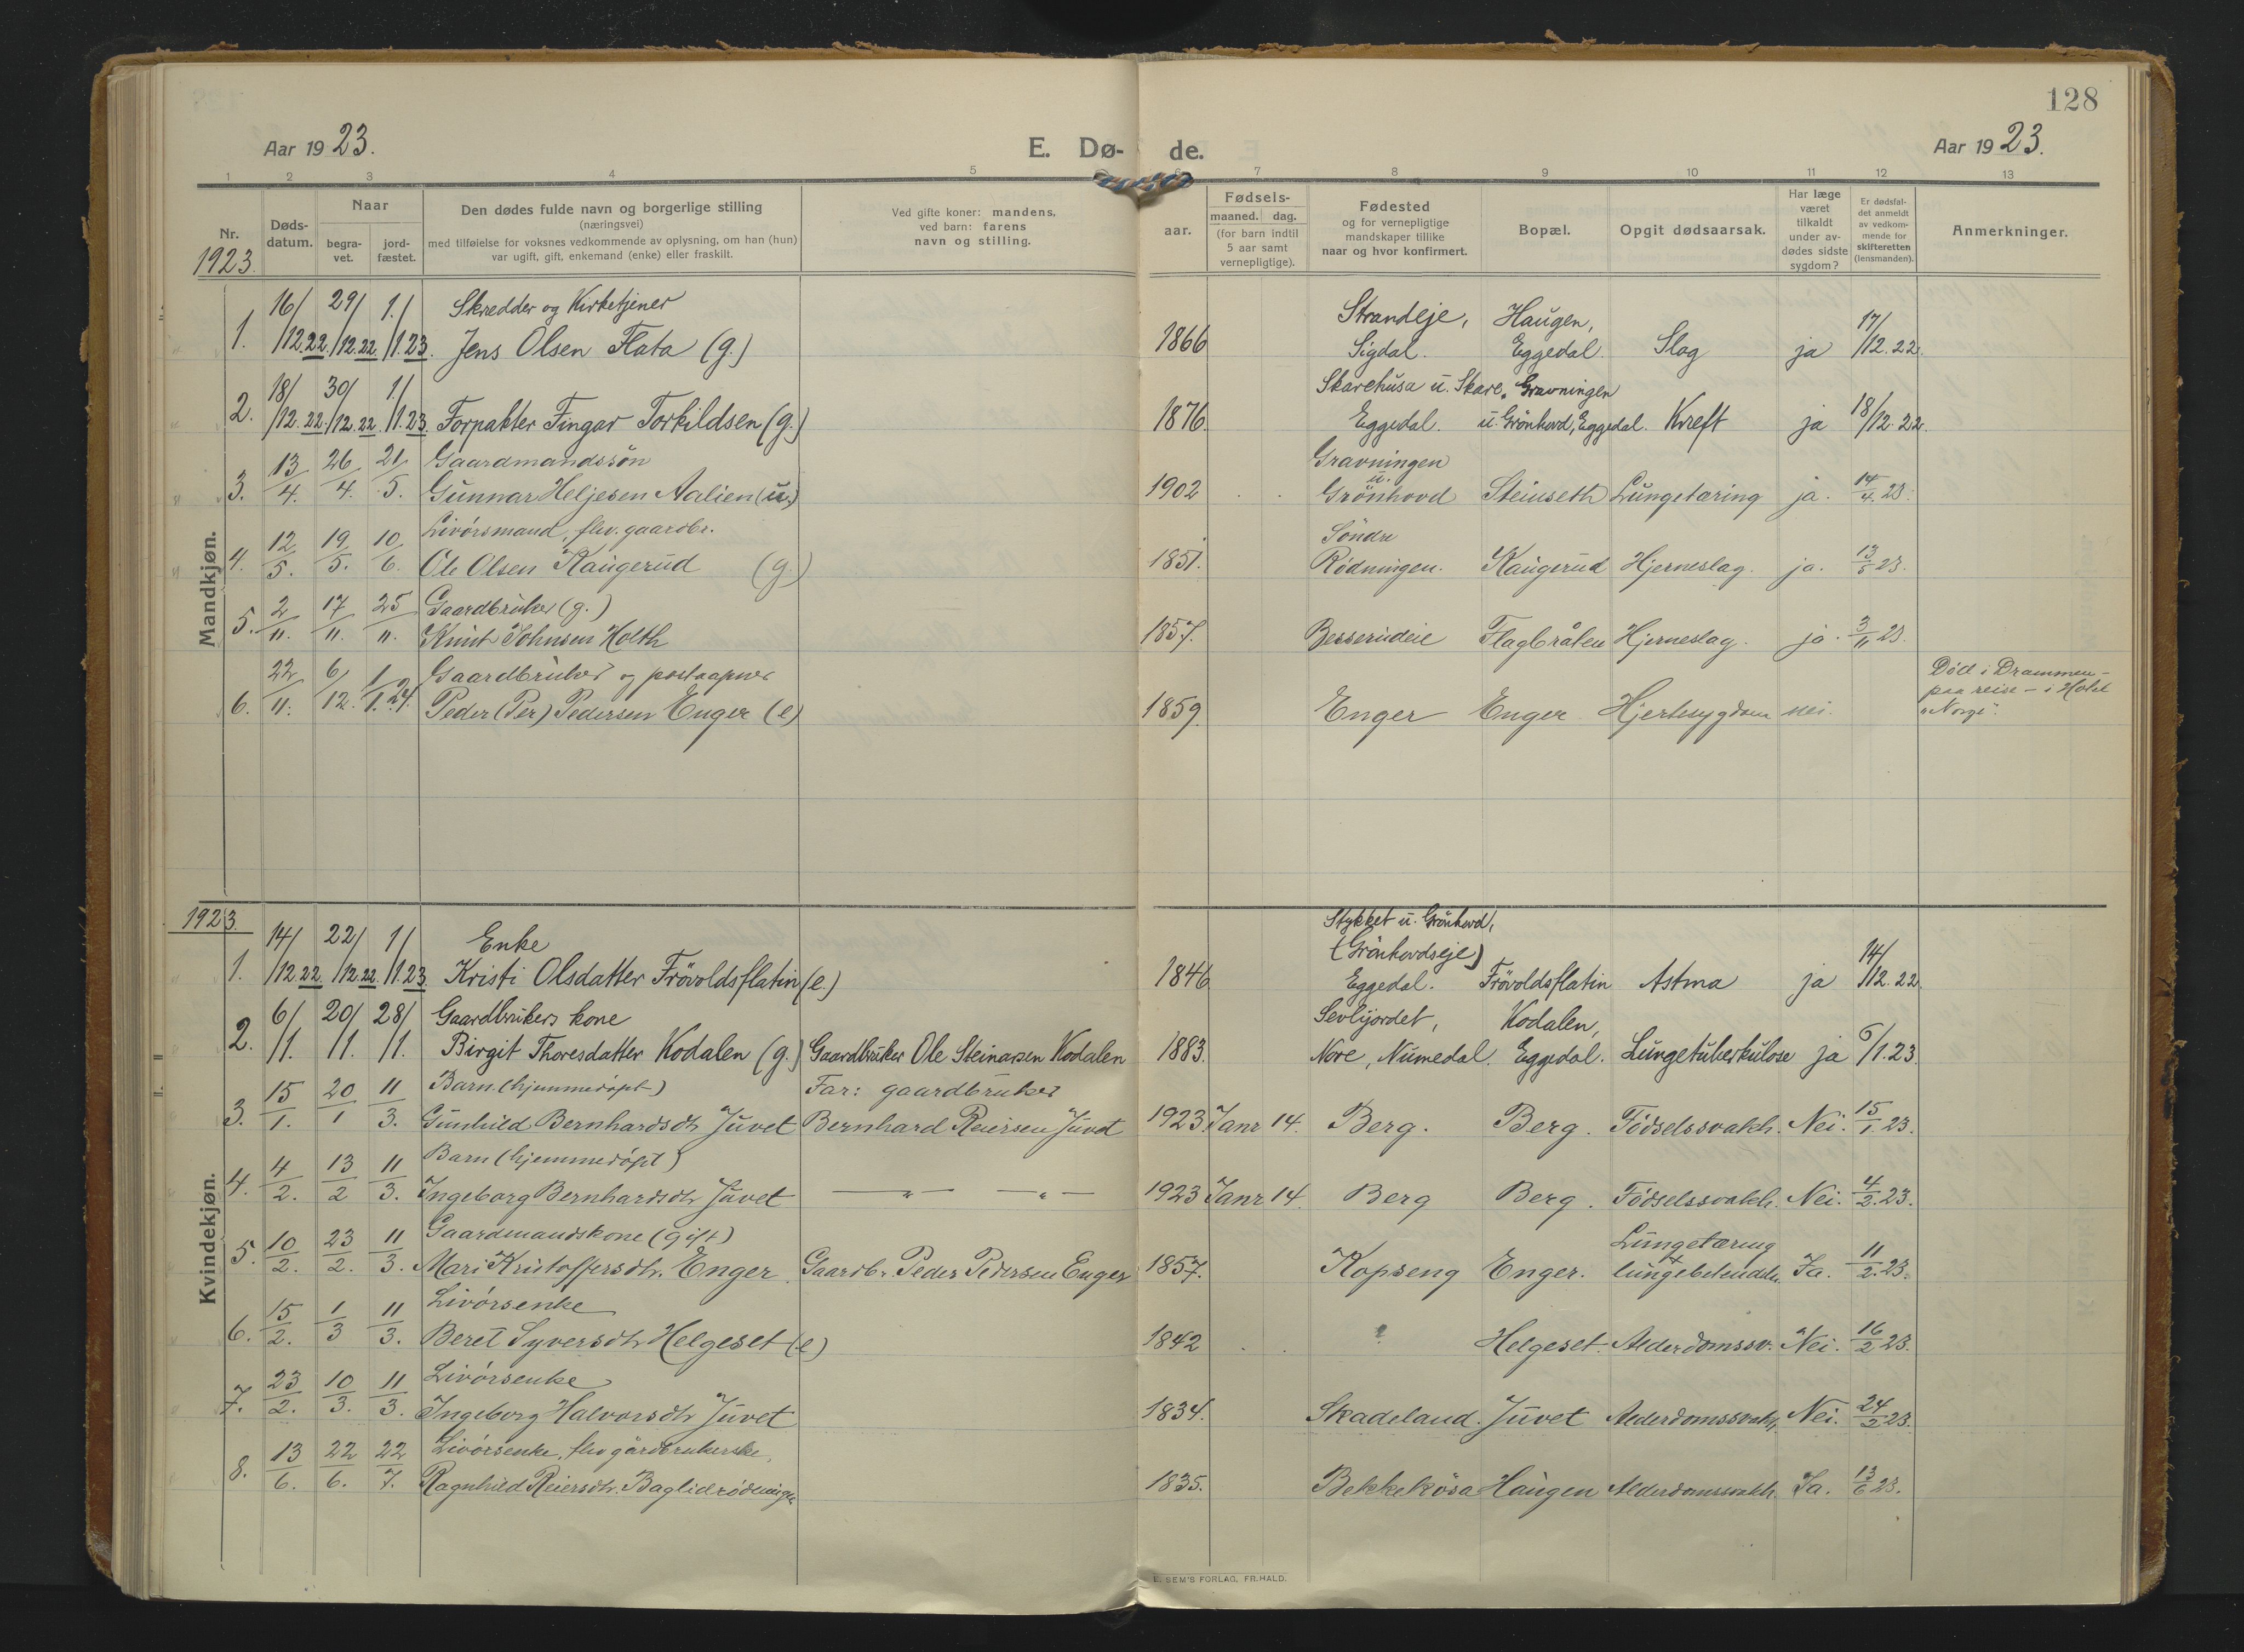 128
Aar 1923.
E. Dø- de.
Aar 1923.
1 2 3 4 5 7 8 9 10 11 12 13
Nr.
Døds-
datum.
Naar
begra-
vet.
jord-
fæstet.
Den dødes fulde navn og borgerlige stilling
(næringsvei)
med tilføielse for voksnes vedkommende av oplysning, om han (hun)
var ugift, gift, enkemand (enke) eller fraskilt.
Ved gifte koner: mandens,
ved barn: farens
navn og stilling.
Fødsels-
aar.
maaned. dag.
(for barn indtil
5 aar samt
vernepligtige).
Fødested
og for vernepligtige
mandskaper tillike
naar og hvor konfirmert.
Bopæl.
Opgit dødsaarsak.
Har læge
været
tilkaldt
under av-
dødes sidste
sygdom?
Er dødsfal-
det anmeldt
av vedkom-
mende for
skifteretten
(lensmanden).
Anmerkninger.
1923.
Mandkjøn.
16/ 29/ 1./ Skredder og Kirketjener Strandeje, Haugen, 17/
1. /12.22. /12.22. /1.23. Jens Olsen Flata (g.) 1866 Sigdal. Eggedal. Slag ja /12.22.
18/ 30/ 1/ Skarehusa u. Skare, Gravningen
2. /12.22. /12.22. /1.23. Forpakter Fingar Torkildsen (g.) 1876. Eggedal. u. Grönhovd, Eggedal. Kræft ja 18/12.22.
13 26 21 Gaardmandssön Gravningen
u.
3. 4. 4. 5. Gunnar Heljesen Aalien (u.) 1902 Grönhovd Steinseth Lungetæring ja. 14/4.23.
12 19 10 Livörsmand, flv. gaardbr. Söndre
4. 5. 5. 6. Ole Olsen Kaugerud (g.) 1851. Rödningen. Kaugerud Hjerneslag. ja. 13/5 23.
2 17 25 Gaardbruker (g.)
5. 11. 11. 11. Knut Johnsen Holth 1857. Besserudeie Flagbråten Hjerneslag. ja. 3/11 23.
22 6/ 1 Gaardbruker og postaapner Död i Drammen -
paa reise - i Hotel
6. 11. 12. 1.24. Peder (Per) Pedersen Enger (e) 1859. Enger Enger Hjertesygdom nei. "Norge".
1923.
Kvindekjøn.
Stykket u. Grönhovd,
14/ 22/ 1/ Enke (Grönhovdseje) 14/
1. /12.22. /12.22. /1.23. Kristi Olsdatter Frövoldsflatin (e.) 1846 Eggedal. Frövoldsflatin Astma ja /12.22.
6/ 20/ 28/ Gaardbrukers kone Sevlijordet, Kodalen,
2. /1. /1. /1. Birgit Thoresdatter Kodalen (g.) Gaardbruker Ole Steinarsen Kodalen 1883. Nore, Numedal. Eggedal. Lungetuberkulose ja 6/1.23.
15 20 11 Barn (hjemmedöpt) Far: gaardbruker
3. 1. 1 3. Gunhild Bernhardsdtr Juvet Bernhard Reiersen Juvet 1923 Janr 14. Berg. Berg. Födselssvakh. Nei. 15/1.23.
4 13 11 Barn (hjemmedöpt)
4. 2. 2 3. Ingeborg Bernhardsdtr Juvet —"— —"— 1923 Janr 14. Berg Berg. Födselssvakh. Nei. 4/2.23.
10 23 11 Gaardmandskone (gift) Lungetæring
5. 2. 2. 3. Mari Kristoffersdtr. Enger Gaardbr. Peder Pedersen Enger 1857. Kopseng Enger. lungebetendelse Ja. 11/2.23.
15 1 11 Livörsenke
6. 2. 3 3. Beret Syversdtr Helgeset (e) 1842 ? Helgeset. Alderdomssv. Nei. 16/2 23.
23 10 11 Livörsenke
7. 2. 3. 3. Ingeborg Halvorsdtr Juvet 1834. Skadeland. Juvet Alderdomssvakh. Nei. 24/2 23.
13 22 22 Livörsenke, flv gårdbrukerske,
8. 6. 6. 7. Ragnhild Reiersdtr. Baglidrödningen 1835. Bekkekåsa Haugen Alderdomssvakh. Ja. 13/6 23.
E. SEM'S FORLAG, FR.HALD.